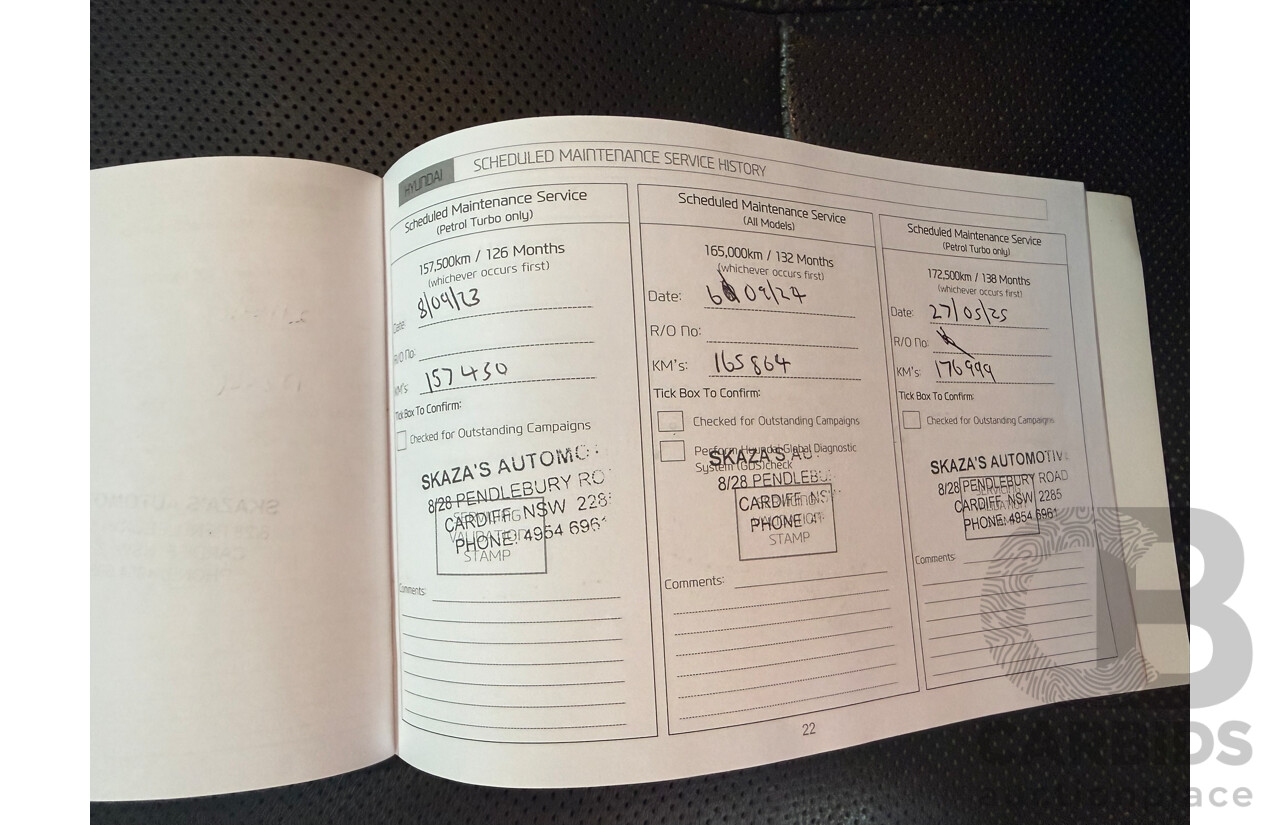 HYUNDAI
SCHEDULED MAINTENANCE SERVICE HISTORY
Scheduled Maintenance Service
(Petrol Turbo only)
157,500km / 126 Months
(whichever occurs first)
Date: 8/09/23
R/O No:
KM's: 157450
Tick Box To Confirm:
Checked for Outstanding Campaigns
SKAZA'S AUTOMO
8/28 PENDLEBURY RO
CARDIFF NSW 228
PHONE: 4954 696
SERVICING
VALIDATION
STAMP
Comments:
Scheduled Maintenance Service
(All Models)
165,000km / 132 Months
(whichever occurs first)
Date: 6 09/24
R/O No:
KM's: 165864
Tick Box To Confirm:
Checked for Outstanding Campaigns
Perform Hyundai Global Diagnostic
System (GDS)check
SKAZA'S AU
8/28 PENDLEBU
CARDIFF NS
PHONE: 4
STAMP
Comments:
Scheduled Maintenance Service
(Petrol Turbo only)
172,500km / 138 Months
(whichever occurs first)
Date: 27/05/25
R/O No:
KM's: 176999
Tick Box To Confirm:
Checked for Outstanding Campaigns
SKAZA'S AUTOMOTIV
8/28 PENDLEBURY ROAD
CARDIFF NSW 2285
PHONE: 4954 6961
Comments:
22
CARBIDS
auctionplace